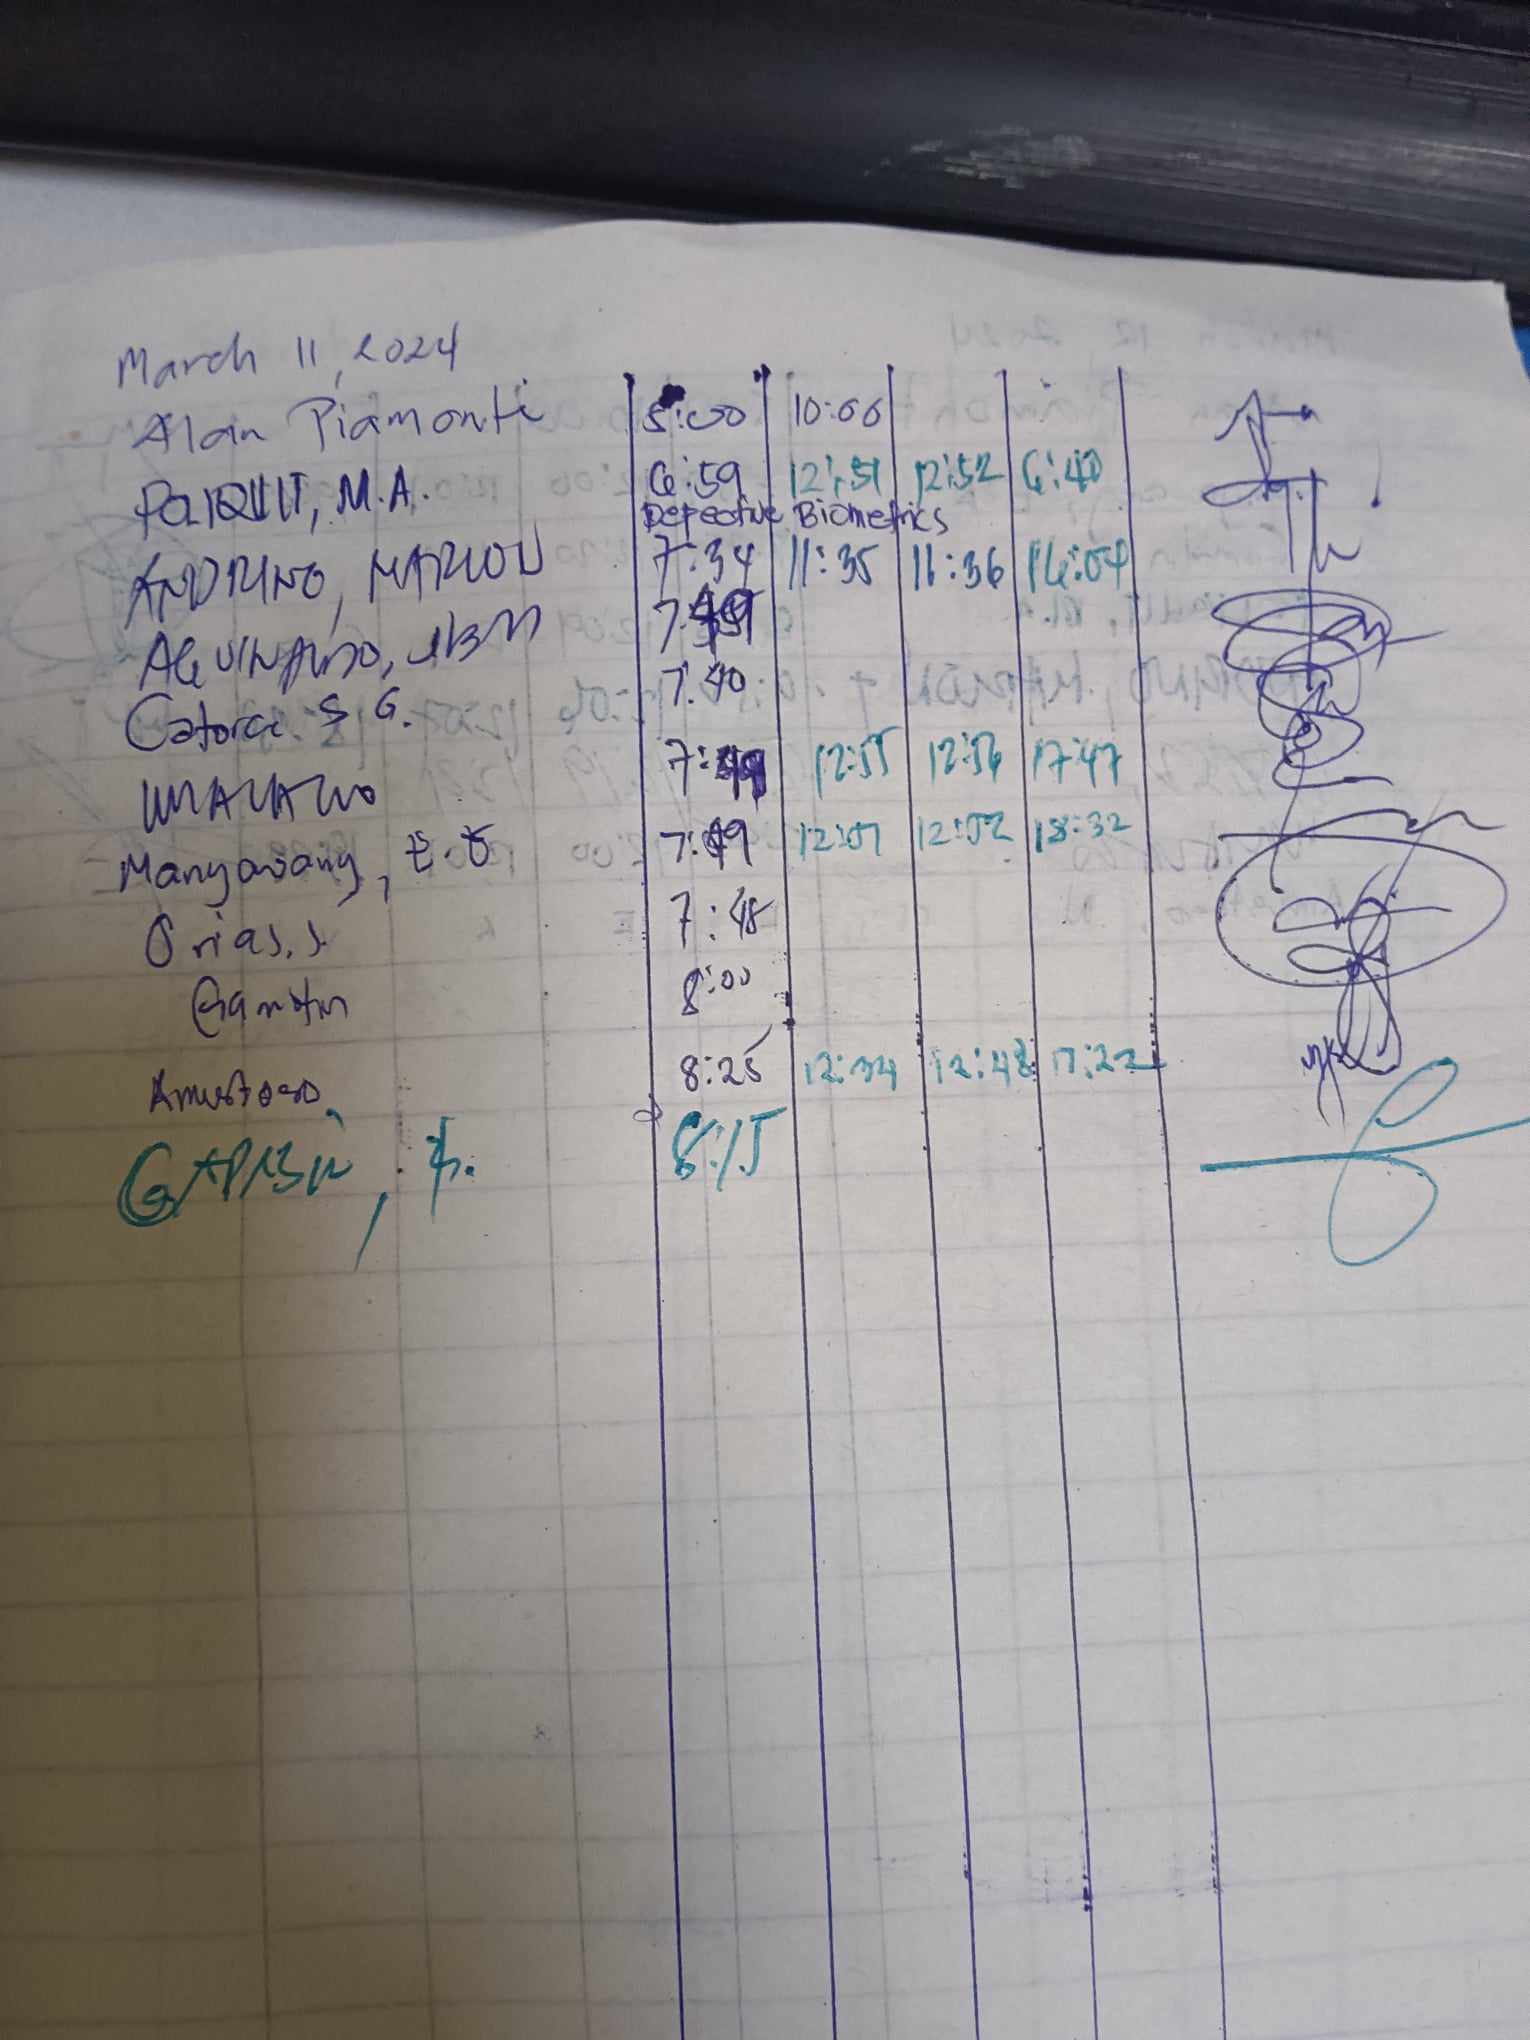 March 11, 2024
Alan Piamonte 5:00 10:00
M.A. 6:59 12:51 12:52 6:40
Defective Biometrics
ANDRINO, MARLON 7:34 11:35 11:36 16:04
AGUINALDO, JBM
Catorce S G. 7:40
7:49 12:55 12:56 17:47
Manyawang, E.O 7:49 12:01 12:02 18:32
Orias, S. 7:48
Gamtin 8:00
8:25 12:34 12:48 17:22
8:15